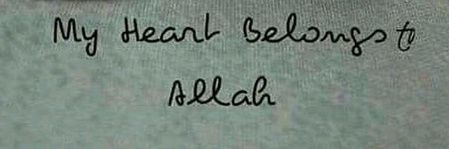 My Heart Belongs to
Allah